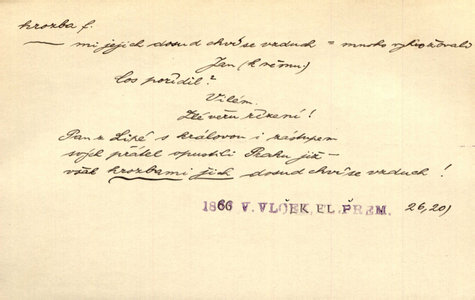 hrozba f.
— mi jejich dosud chví se vzduch = mnoho vyhrožovali
Jan (k němu)
Cos pořídil?
Vilém.
Zlé věru řízení!
Pan z Lipé s královou i zástupem
svých přátel opustili Prahu již —
však hrozbami jich dosud chví se vzduch!
1866 V. VLČEK, EL. PŘEM. 26, 20)